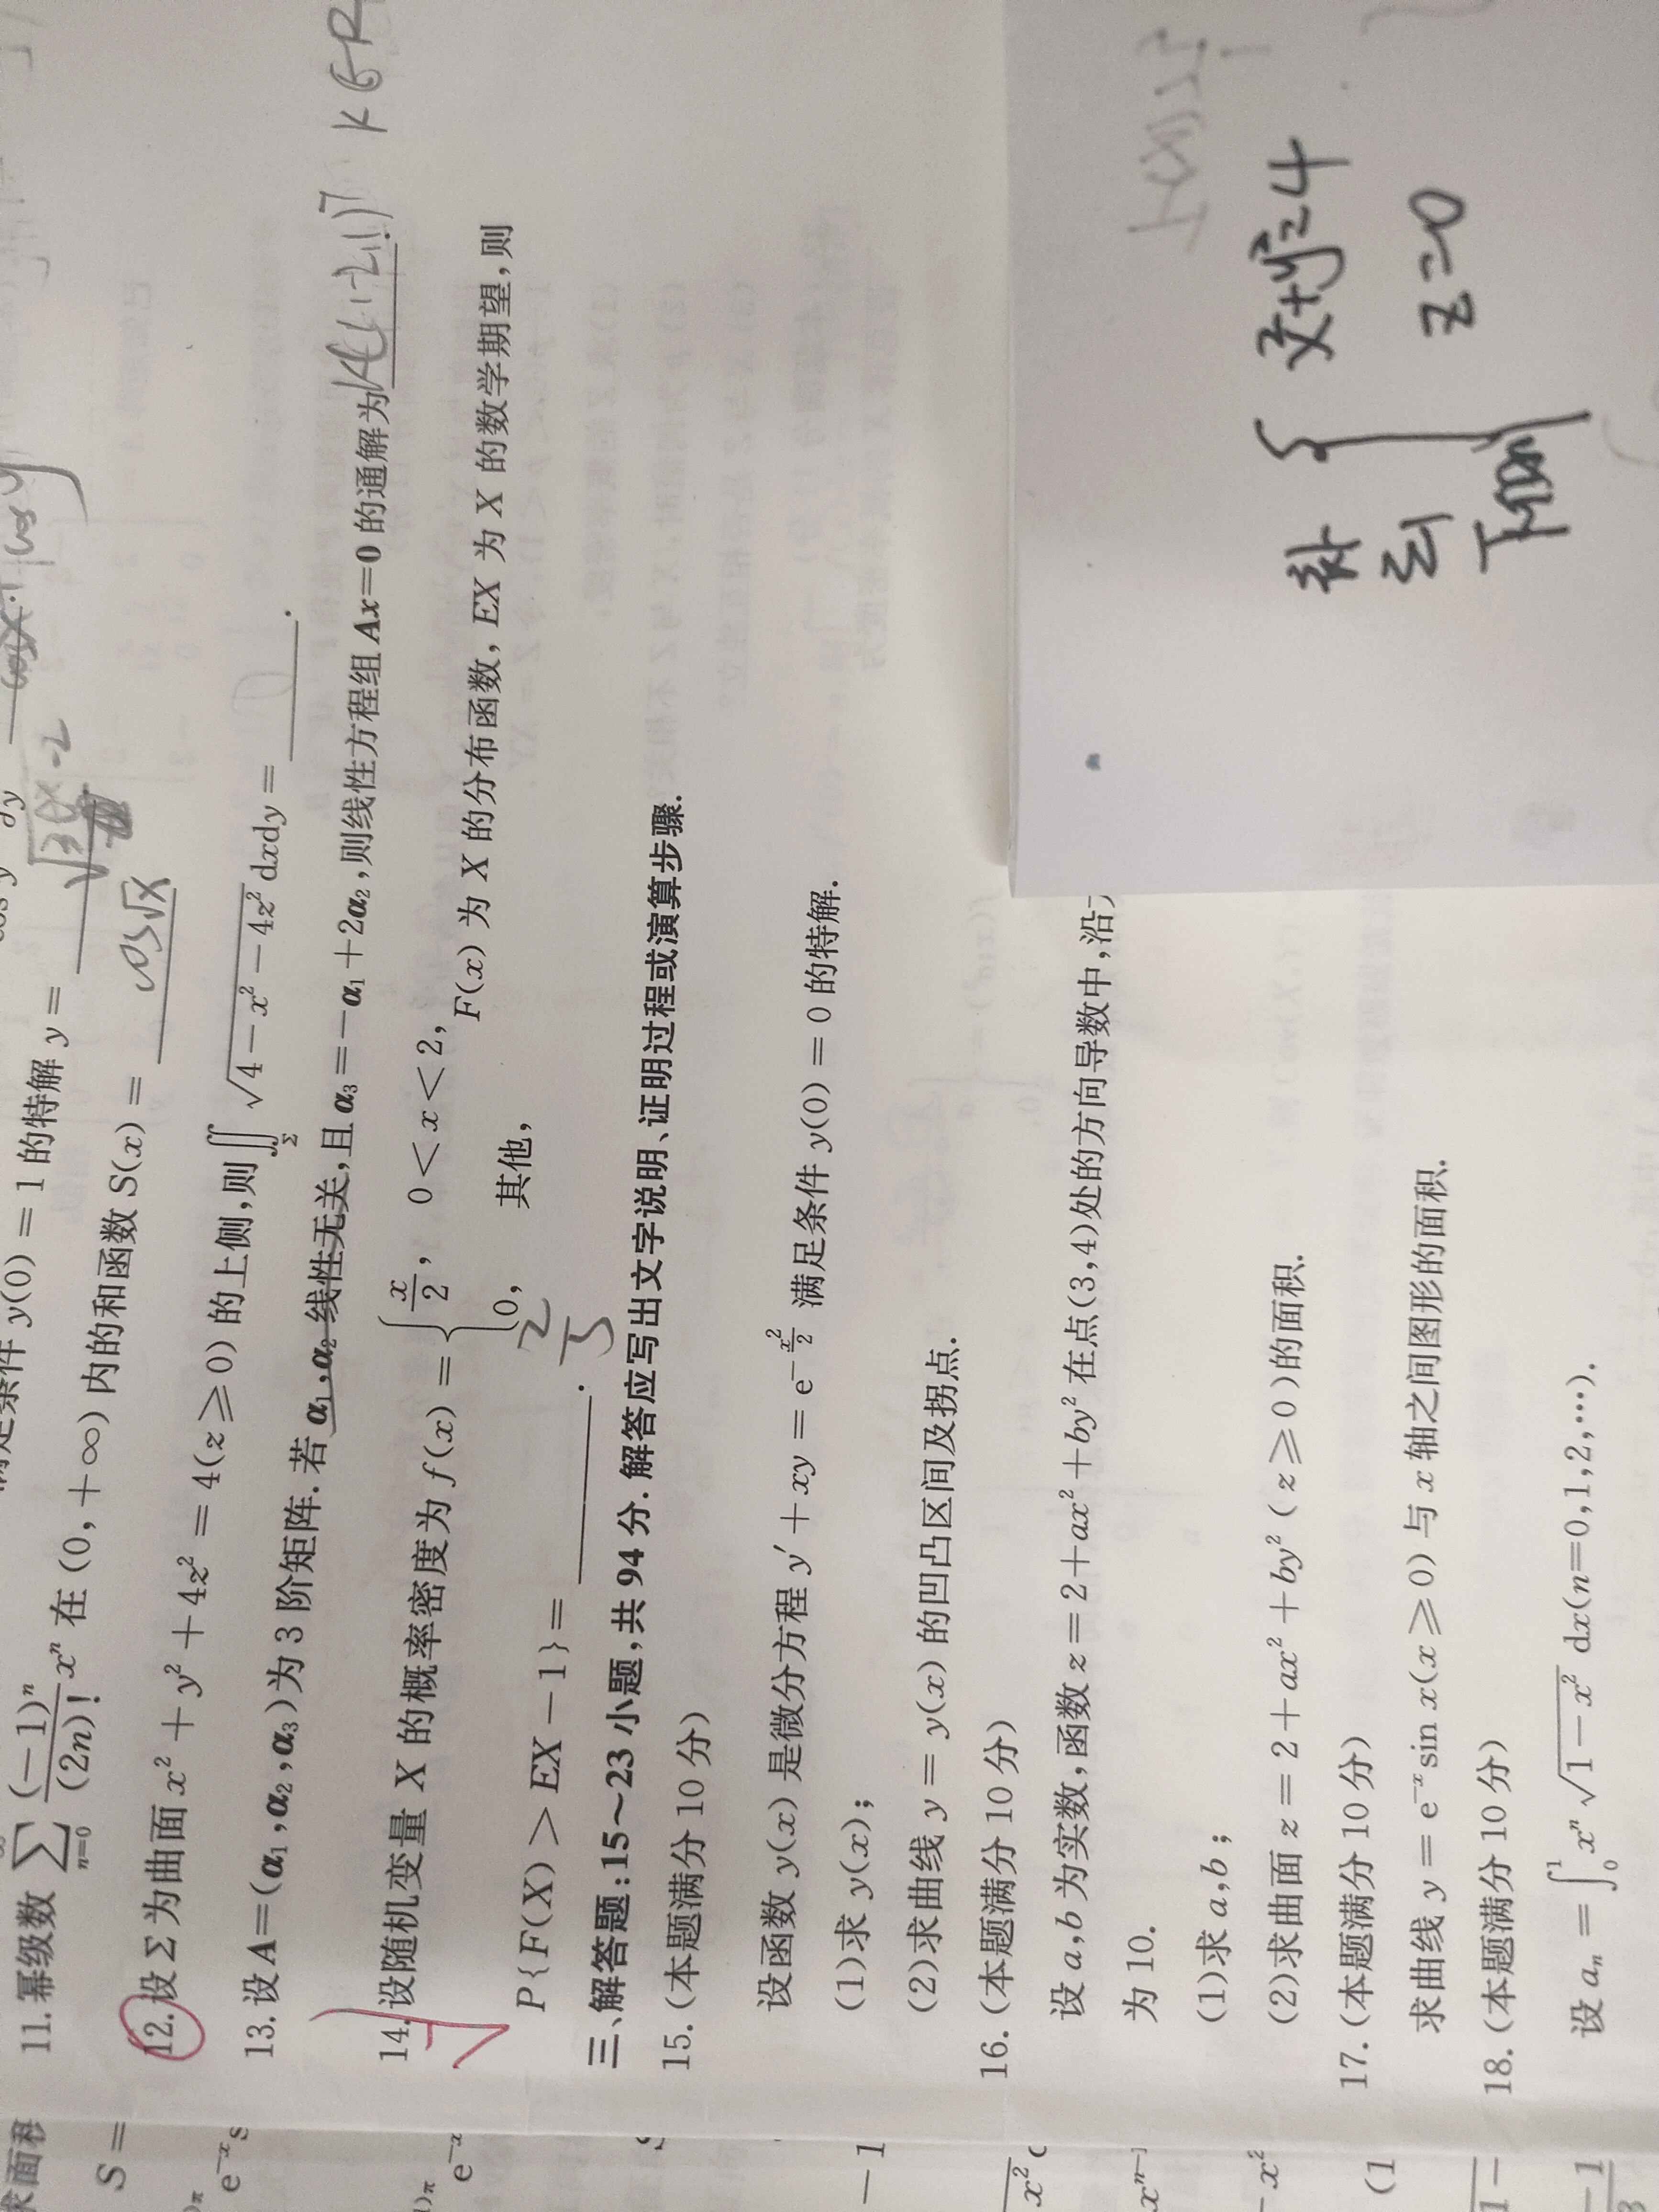 满足条件 y(0) = 1 的特解 y = √3e^x-2
11. 幂级数 ∑_{n=0}^{∞} (-1)^n/(2n)! x^n 在 (0,+∞) 内的和函数 S(x) = cos√x
12. 设 Σ 为曲面 x²+y²+4z²=4(z≥0) 的上侧,则∬_Σ √(4-x²-4z²) dxdy = ____.
13. 设 A=(α₁,α₂,α₃)为 3 阶矩阵. 若 α₁,α₂ 线性无关,且 α₃=-α₁+2α₂,则线性方程组 Ax=0 的通解为 k(1,-2,1)^T k∈R
14. 设随机变量 X 的概率密度为 f(x) = { x/2, 0<x<2, 0, 其他, F(x) 为 X 的分布函数, EX 为 X 的数学期望,则
P{F(X)>EX-1}= ____. 2/3
三、解答题:15~23 小题,共 94 分. 解答应写出文字说明、证明过程或演算步骤.
15. (本题满分 10 分)
设函数 y(x) 是微分方程 y′+xy=e^{-x²/2} 满足条件 y(0)=0 的特解.
(1)求 y(x);
(2)求曲线 y=y(x) 的凹凸区间及拐点.
16. (本题满分 10 分)
设 a,b 为实数,函数 z=2+ax²+by² 在点(3,4)处的方向导数中,沿
为 10.
(1)求 a,b;
(2)求曲面 z=2+ax²+by²(z≥0)的面积.
17. (本题满分 10 分)
求曲线 y=e^{-x}sin x(x≥0)与 x 轴之间图形的面积.
18. (本题满分 10 分)
设 a_n = ∫_0^1 x^n √(1-x²) dx(n=0,1,2,…).
补 { x²+y²=4
Σ1 z=0
下侧
求面积
S =
e^{-x}s
e^{-x}
-1